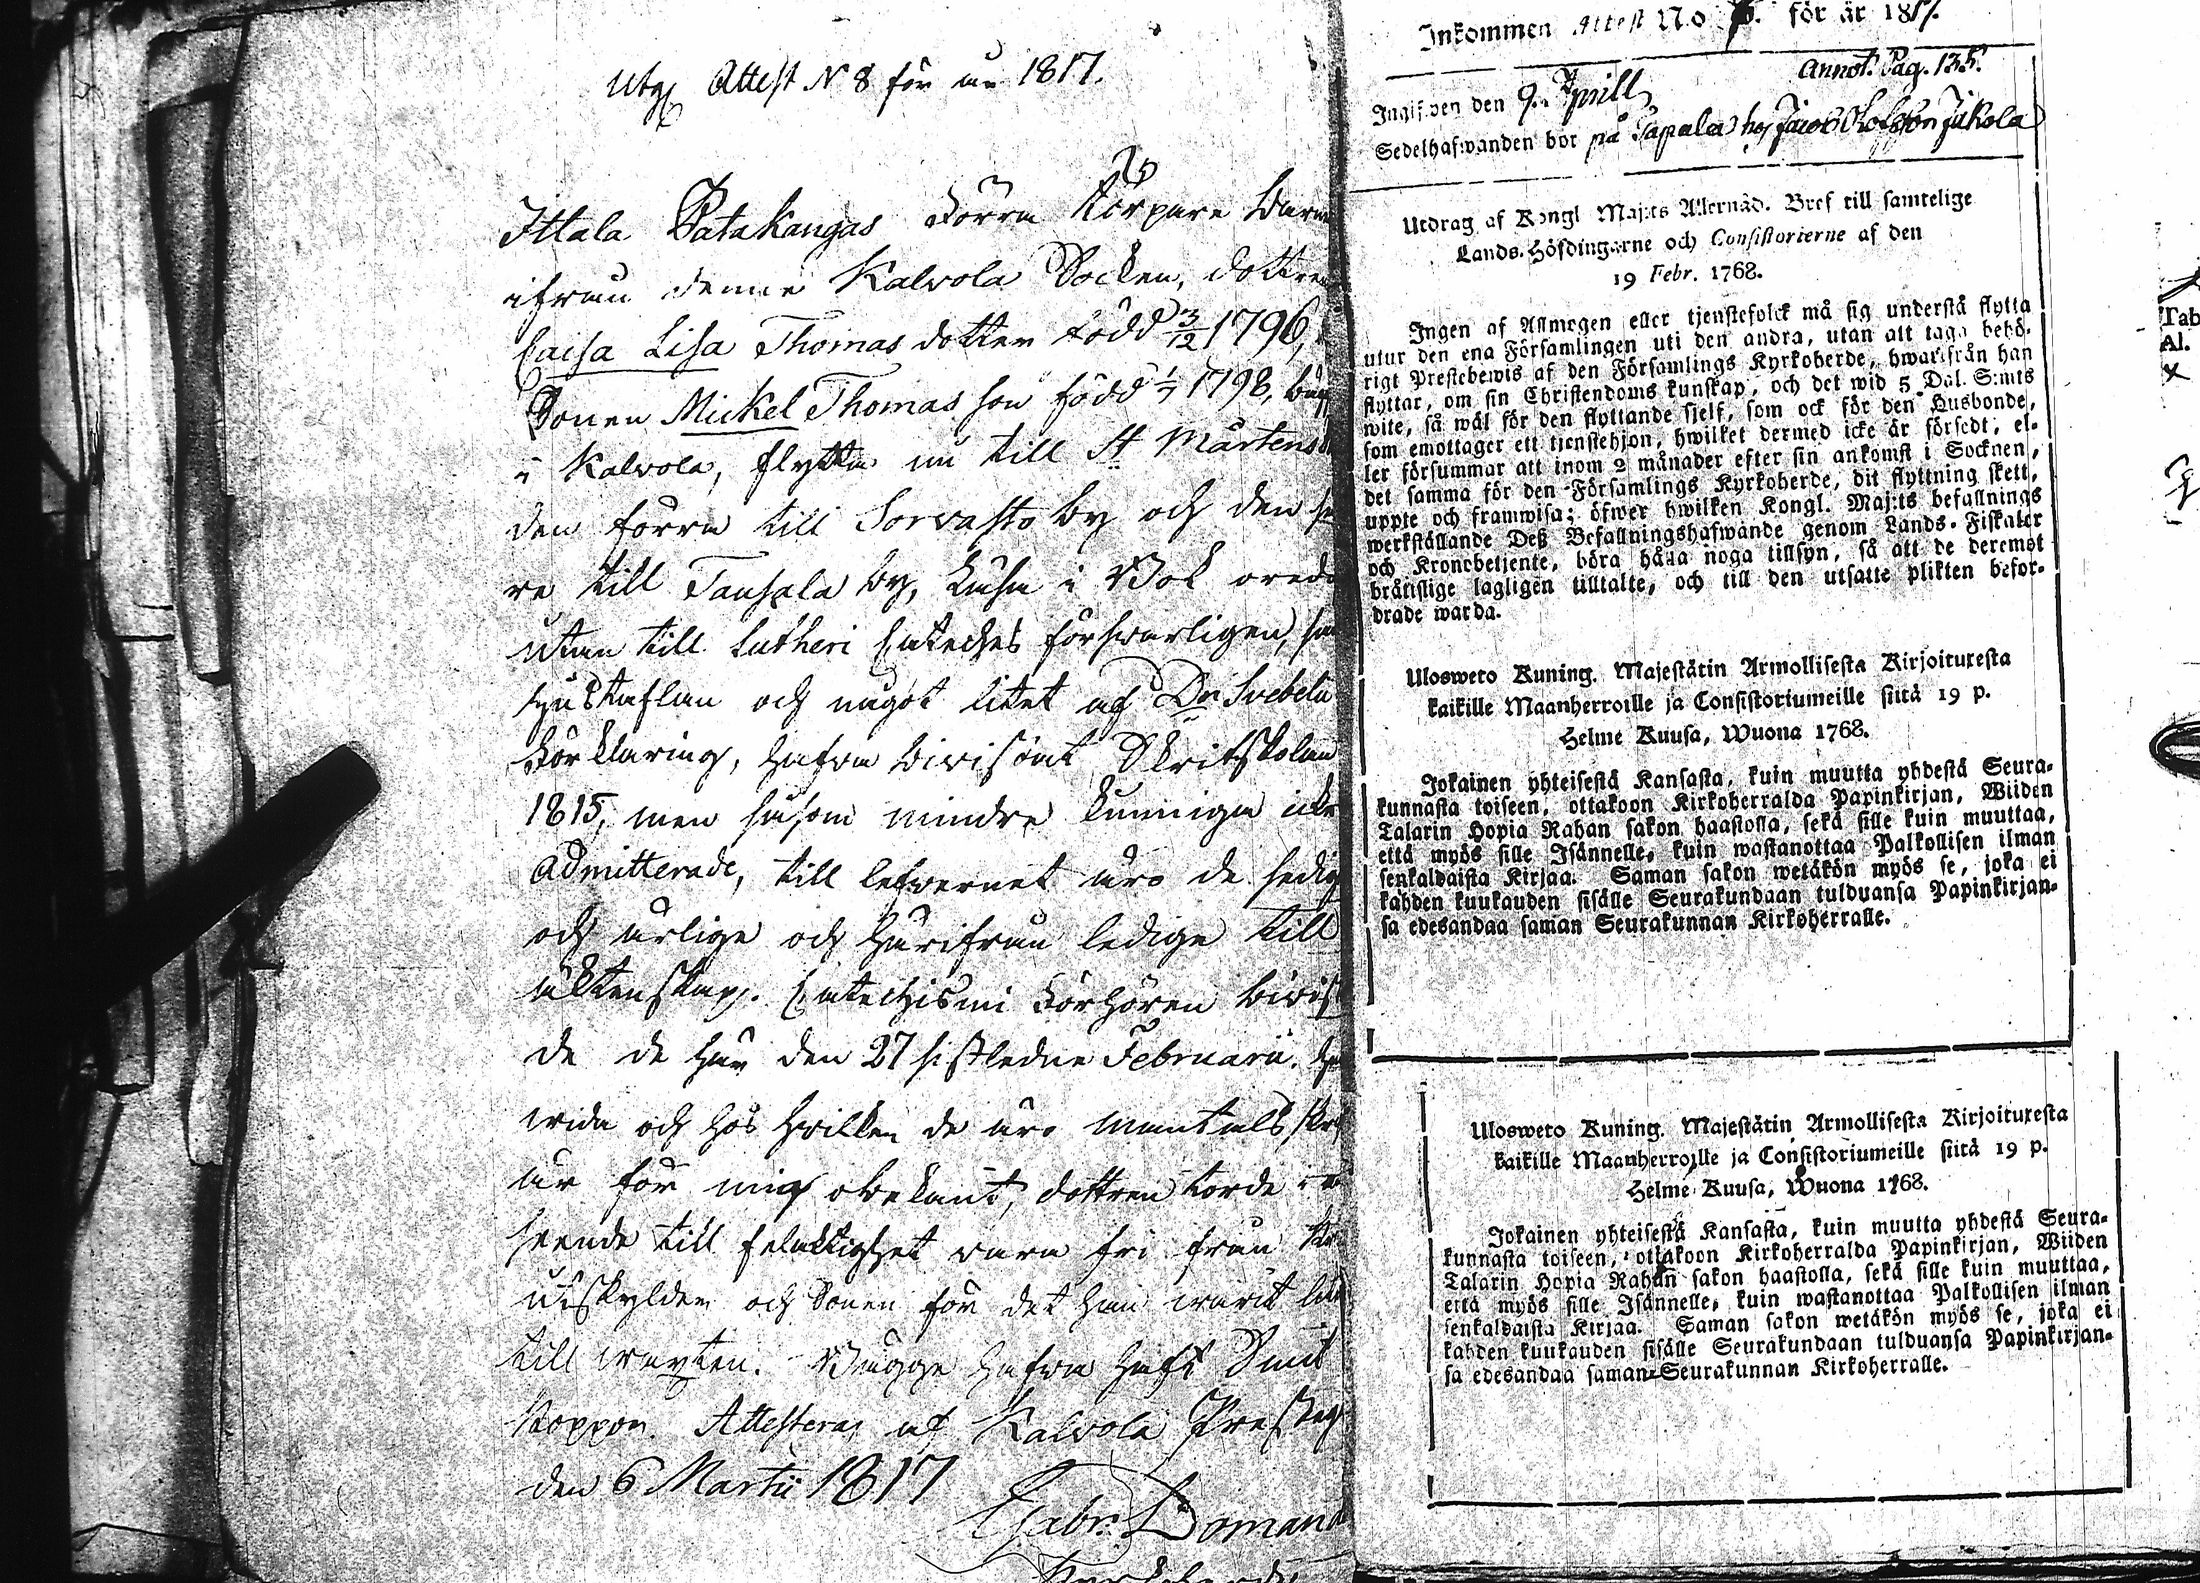 Utg. Attest N 8 för år 1817.
Ittala Patakangas Förra Torpare Barn
ifrån denne Kalvola Socken, dottren
Caisa Lisa Thomas dotter född 3/12 1796,
Sonen Mickel Thomas son född 1798,
i Kalvola, flytta nu till St Mårtens
den förra till Sorvasto by och den
re till Tansala by, läsa i Bok
utan till Lutheri Cateches försvarligen,
hustaflan och något litet af Dr Svebelii
Förklaring, hafva bivistat Skriftskolan
1815, men såsom mindre kunniga icke
admitterade, till lefvernet äro de sedige
och ärlige och härifrån ledige till
äktenskap. Catechismi Förhören bivist
de de här den 27 sistledne Februarii.
vida och hos hvilken de äro mantals skrif
är för mig obekant, dottren torde i an
seende till felaktighet vara fri från
utskylder och Sonen för det han varit
till växten. Bägge hafva haft Smit
koppor. Attesteras af Kalvola Prestegård
den 6 Martii 1817
Gabr. Bomans
Kyrkoherde
Inkommen Attest No 6. för år 1817.
Annot. Pag. 135.
Ingifven den 9. Aprill
Sedelhafwanden bor på Papala hos Jacob Jukola
Utdrag af Kongl Maj:ts Allernåd. Bref till samtelige
Lands-Höfdingarne och Consistorierne af den
19 Febr. 1768.
Ingen af Allmogen eller tjenstefolck må sig understå flytta
utur den ena Församlingen uti den andra, utan att taga behö-
rigt Prestebewis af den Församlings Kyrkoherde, hwarifrån han
flyttar, om sin Christendoms kunskap, och det wid 5 Dal. S:mts
wite, så wäl för den flyttande sjelf, som ock för den Husbonde,
som emottager ett tjenstehjon, hwilket dermed icke är försedt, el-
ler försummar att inom 2 månader efter sin ankomst i Socknen,
det samma för den Församlings Kyrkoherde, dit flyttning skett,
uppte och framwisa; öfwer hwilken Kongl. Maj:ts befallnings
werkställande Deß Befallningshafwande genom Lands-Fiskaler
och Kronobetjente, böra hålla noga tillsyn, så att de deremot
brätslige lagligen tilltalte, och till den utsatte plikten befor-
drade warda.
Ulosweto Kuning. Majestätin Armollisesta Kirjoituxesta
kaikille Maanherroille ja Consistoriumeille siitä 19 p.
Helme Kuusa, Wuona 1768.
Jokainen yhteisestä Kansasta, kuin muutta yhdestä Seura-
kunnasta toiseen, ottakoon Kirkoherralda Papinkirjan, Wiiden
Talarin Hopia Rahan sakon haastolla, sekä sille kuin muuttaa,
että myös sille Isännelle, kuin wastanottaa Palkollisen ilman
senkaldaista Kirjaa. Saman sakon wetäkön myös se, joka ei
kahden kuukauden sisälle Seurakundaan tulduansa Papinkirjan-
sa edesandaa saman Seurakunnan Kirkoherralle.
Ulosweto Kuning. Majestätin Armollisesta Kirjoituxesta
kaikille Maanherroille ja Consistoriumeille siitä 19 p.
Helme Kuusa, Wuona 1768.
Jokainen yhteisestä Kansasta, kuin muutta yhdestä Seura-
kunnasta toiseen, ottakoon Kirkoherralda Papinkirjan, Wiiden
Talarin Hopia Rahan sakon haastolla, sekä sille kuin muuttaa,
että myös sille Isännelle, kuin wastanottaa Palkollisen ilman
senkaldaista Kirjaa. Saman sakon wetäkön myös se, joka ei
kahden kuukauden sisälle Seurakundaan tulduansa Papinkirjan-
sa edesandaa saman Seurakunnan Kirkoherralle.
Tab
Al.